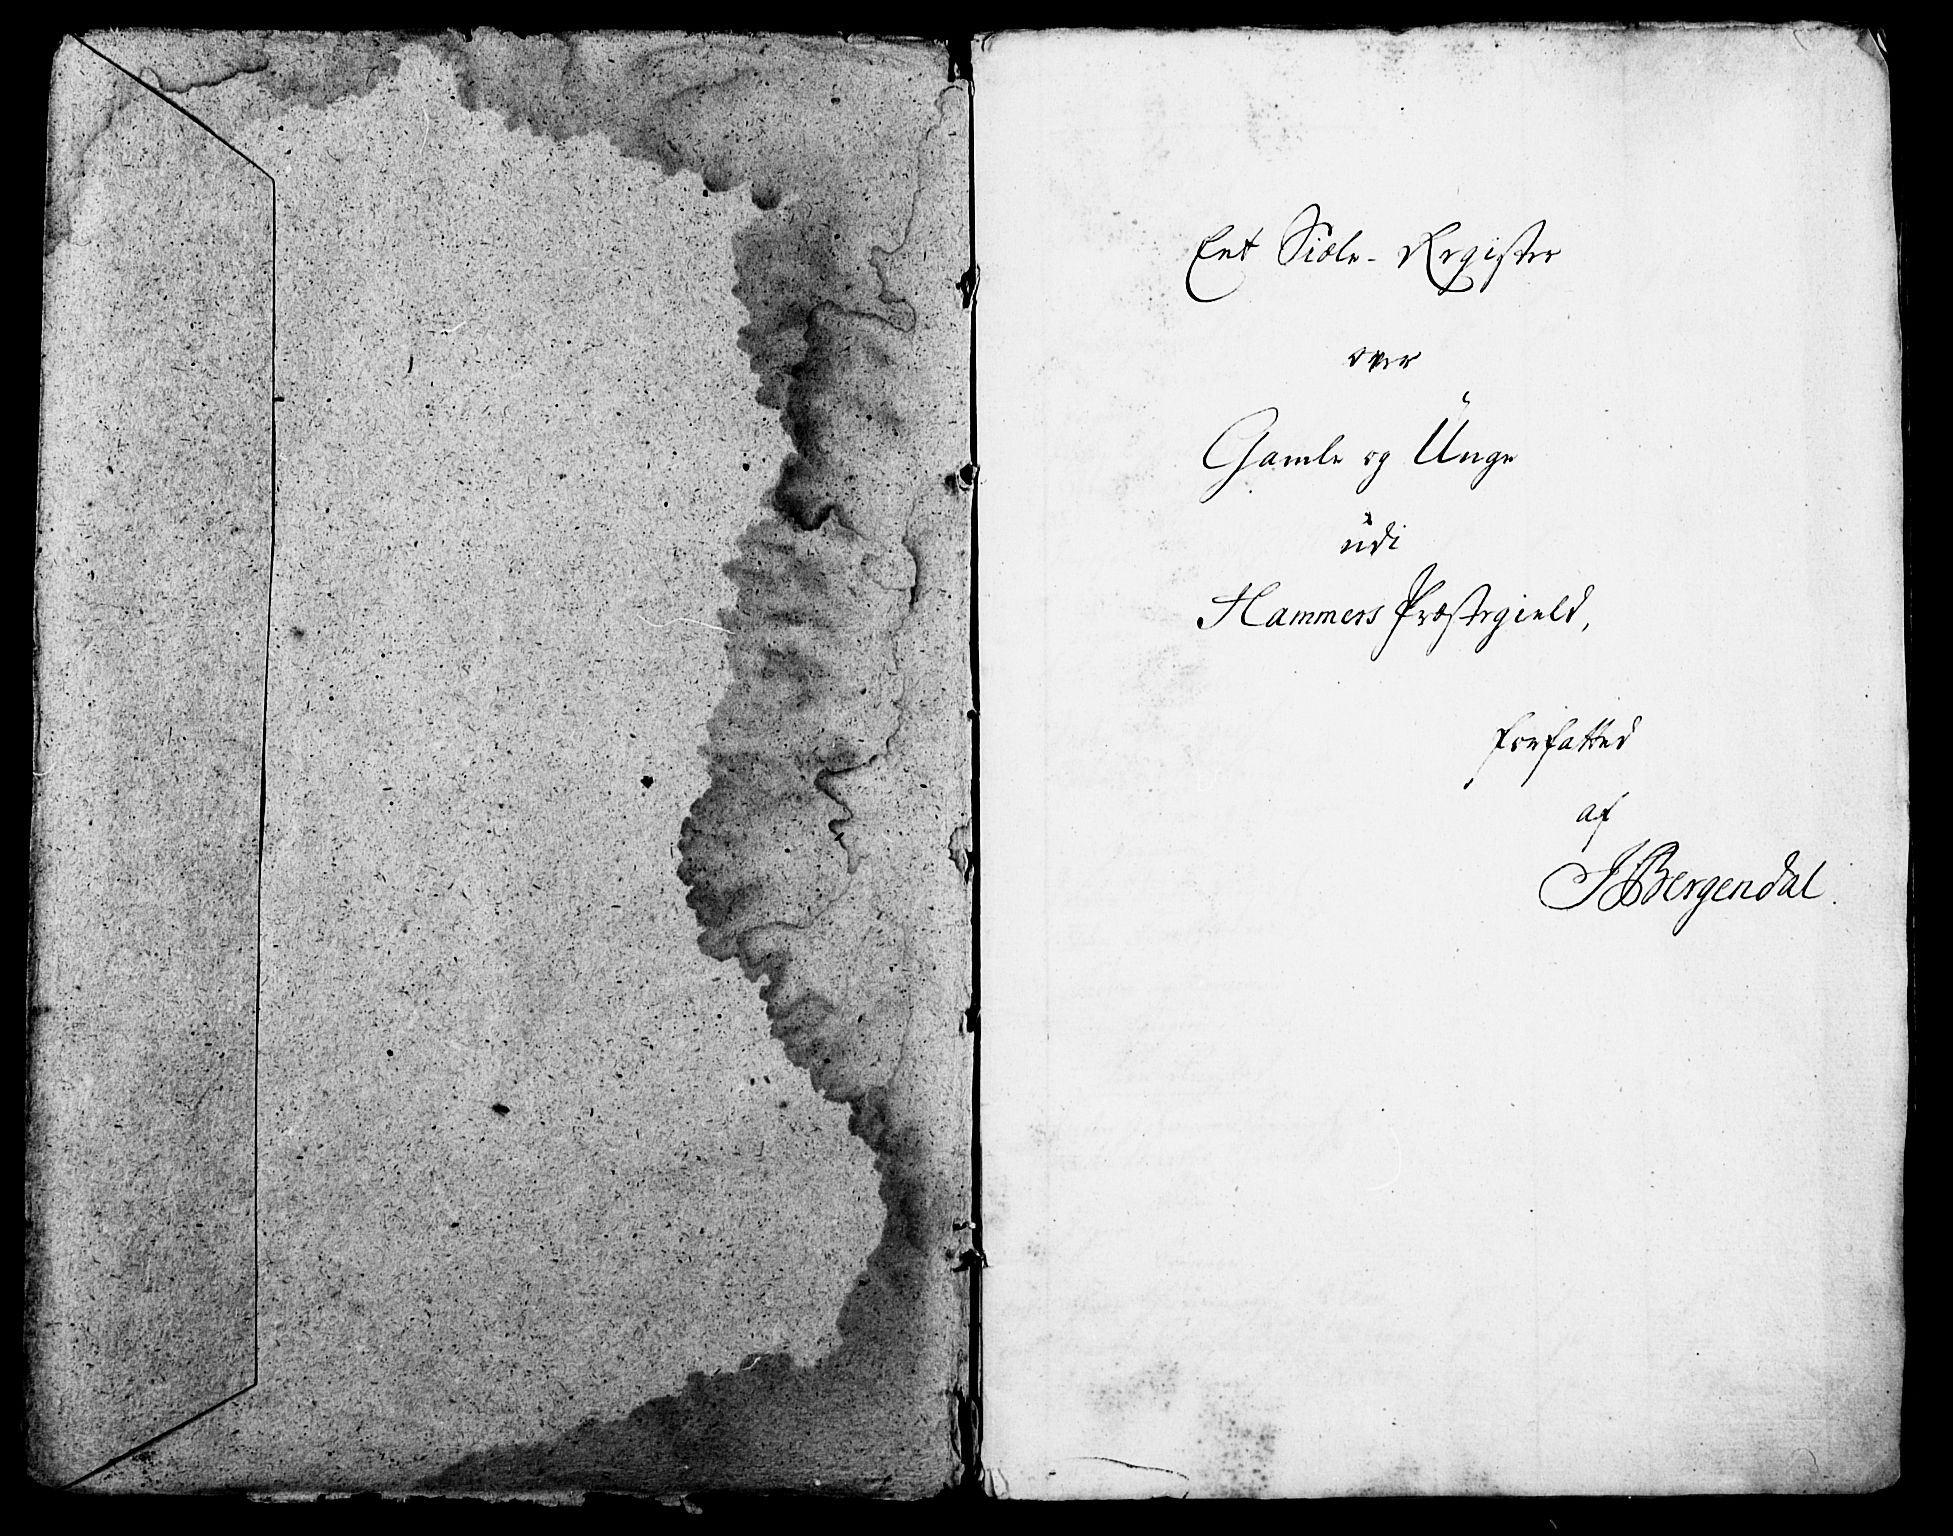 Eet Siæle-Register
over
Gamle og Unge
udi
Hammers Præstegield,
forfatted
af
JBergendal.